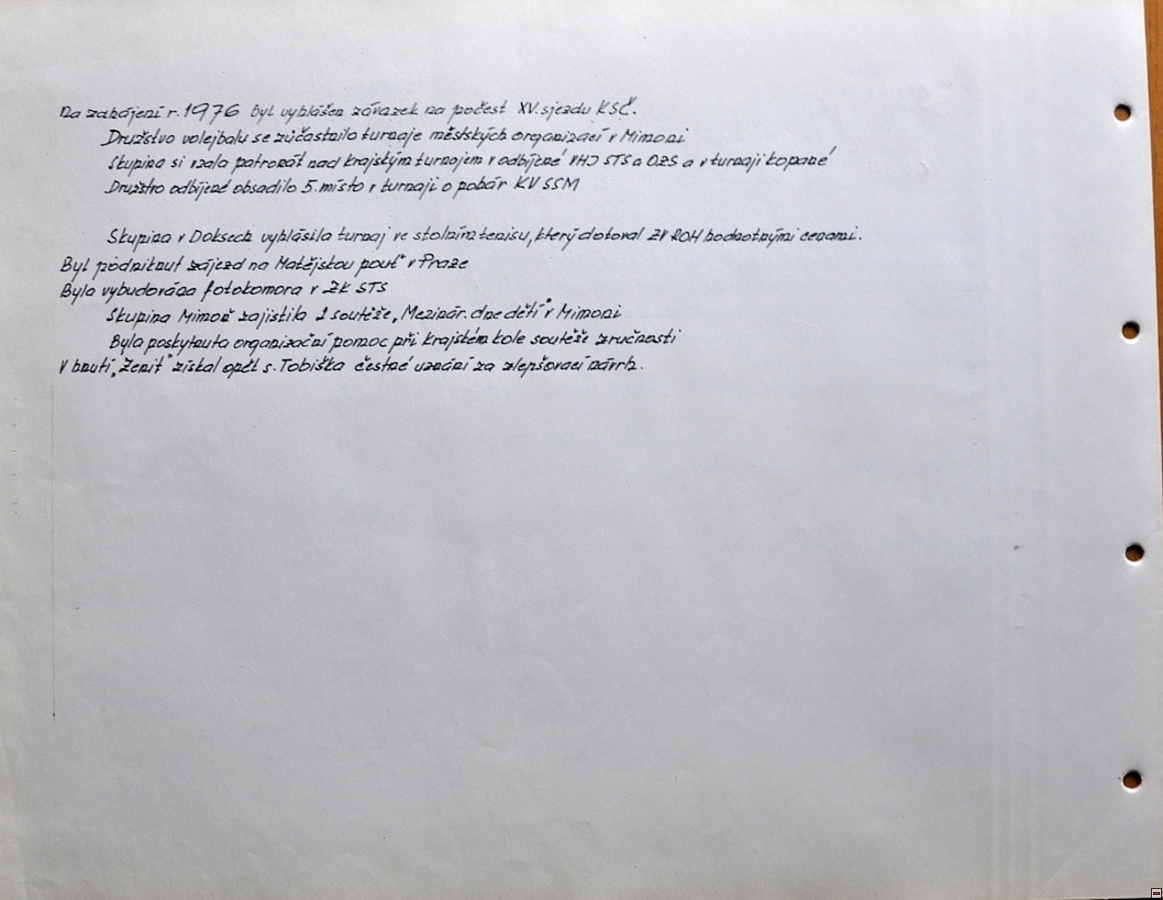 Na zahájení r. 1976 byl vyhlášen závazek na počest XV. sjezdu KSČ.
Družstvo volejbalu se zúčastnilo turnaje městských organizací v Mimoni
Skupina si vzala patronát nad krajským turnajem v odbíjené VHJ STS a OZS a v turnaji kopané
Družstvo odbíjené obsadilo 5. místo v turnaji o pohár KV SSM
Skupina v Doksech vyhlásila turnaj ve stolním tenisu, který dotoval ZV ROH hodnotnými cenami.
Byl podniknut zájezd na Matějskou pouť v Praze
Byla vybudována fotokomora v ZK STS
Skupina Mimoň zajistila 2 soutěže „Mezinár. dne dětí" v Mimoni
Byla poskytnuta organizační pomoc při krajském kole soutěže zručnosti
V hnutí „Zenit" získal opět s. Tobiška čestné uznání za zlepšovací návrh.